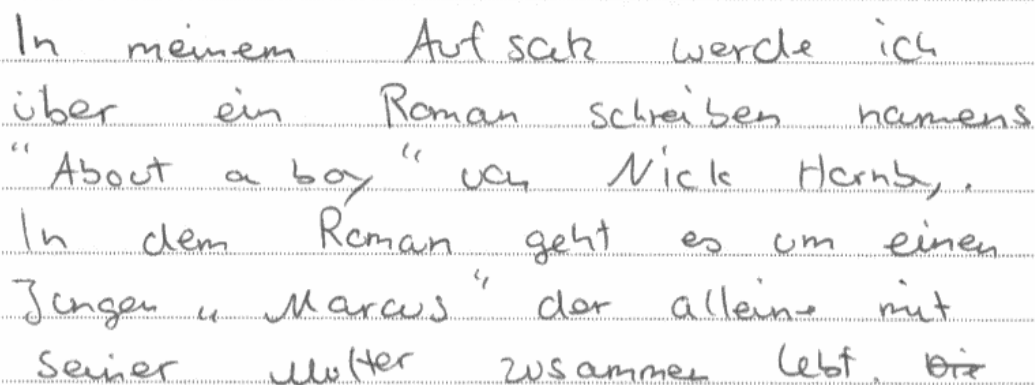 In meinem Aufsatz werde ich
über ein Roman schreiben namens
"About a boy" von Nick Hornby.
In dem Roman geht es um einen
Jungen "Marcus" der alleine mit
seiner Mutter zusammen lebt. Die